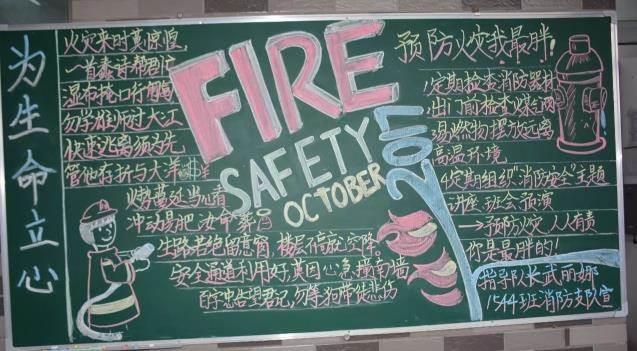 为生命立心
火灾来时莫惊慌
一首泰诗帮君忙
湿布掩口行
勿学
快速逃离须为先
管他存折与大洋
火势蔓处当心看
生路若绝留意窗
安全通道利用好,莫因心急撞南墙
百字忠告望君记,勿等
FIRE
SAFETY
OCTOBER
2017
预防火灾我最胖!
定期检查消防器材
出门前检查火源
易燃物摆放远离
高温环境
4定期组织"消防安全"主题
讲座 班会 预演
→预防火灾,人人有责
你是最胖的!
指导队长武丽娜
1544班消防支队宣